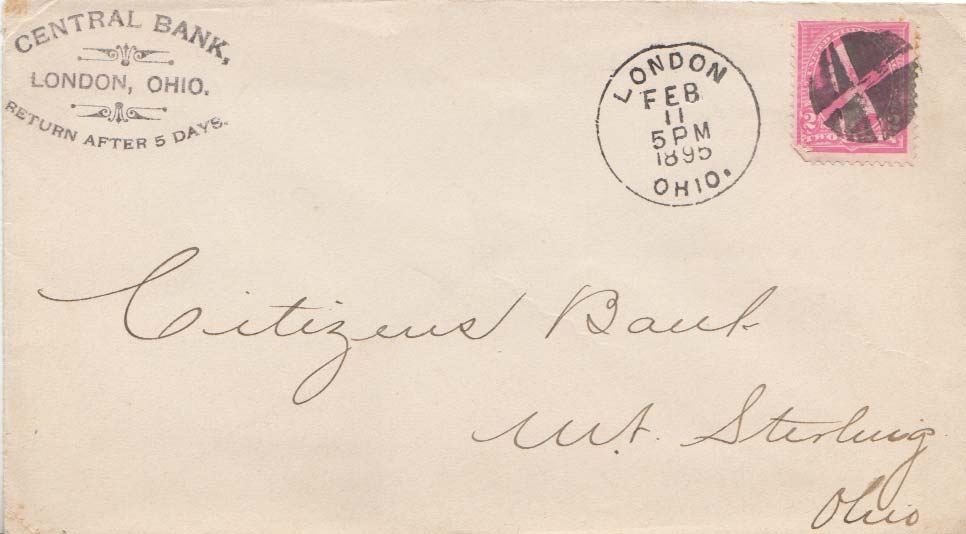 CENTRAL BANK,
LONDON, OHIO.
RETURN AFTER 5 DAYS.
LONDON
FEB
11
5PM
1895
OHIO.
2
TWO
Citizens Bank
Mt. Sterling
Ohio